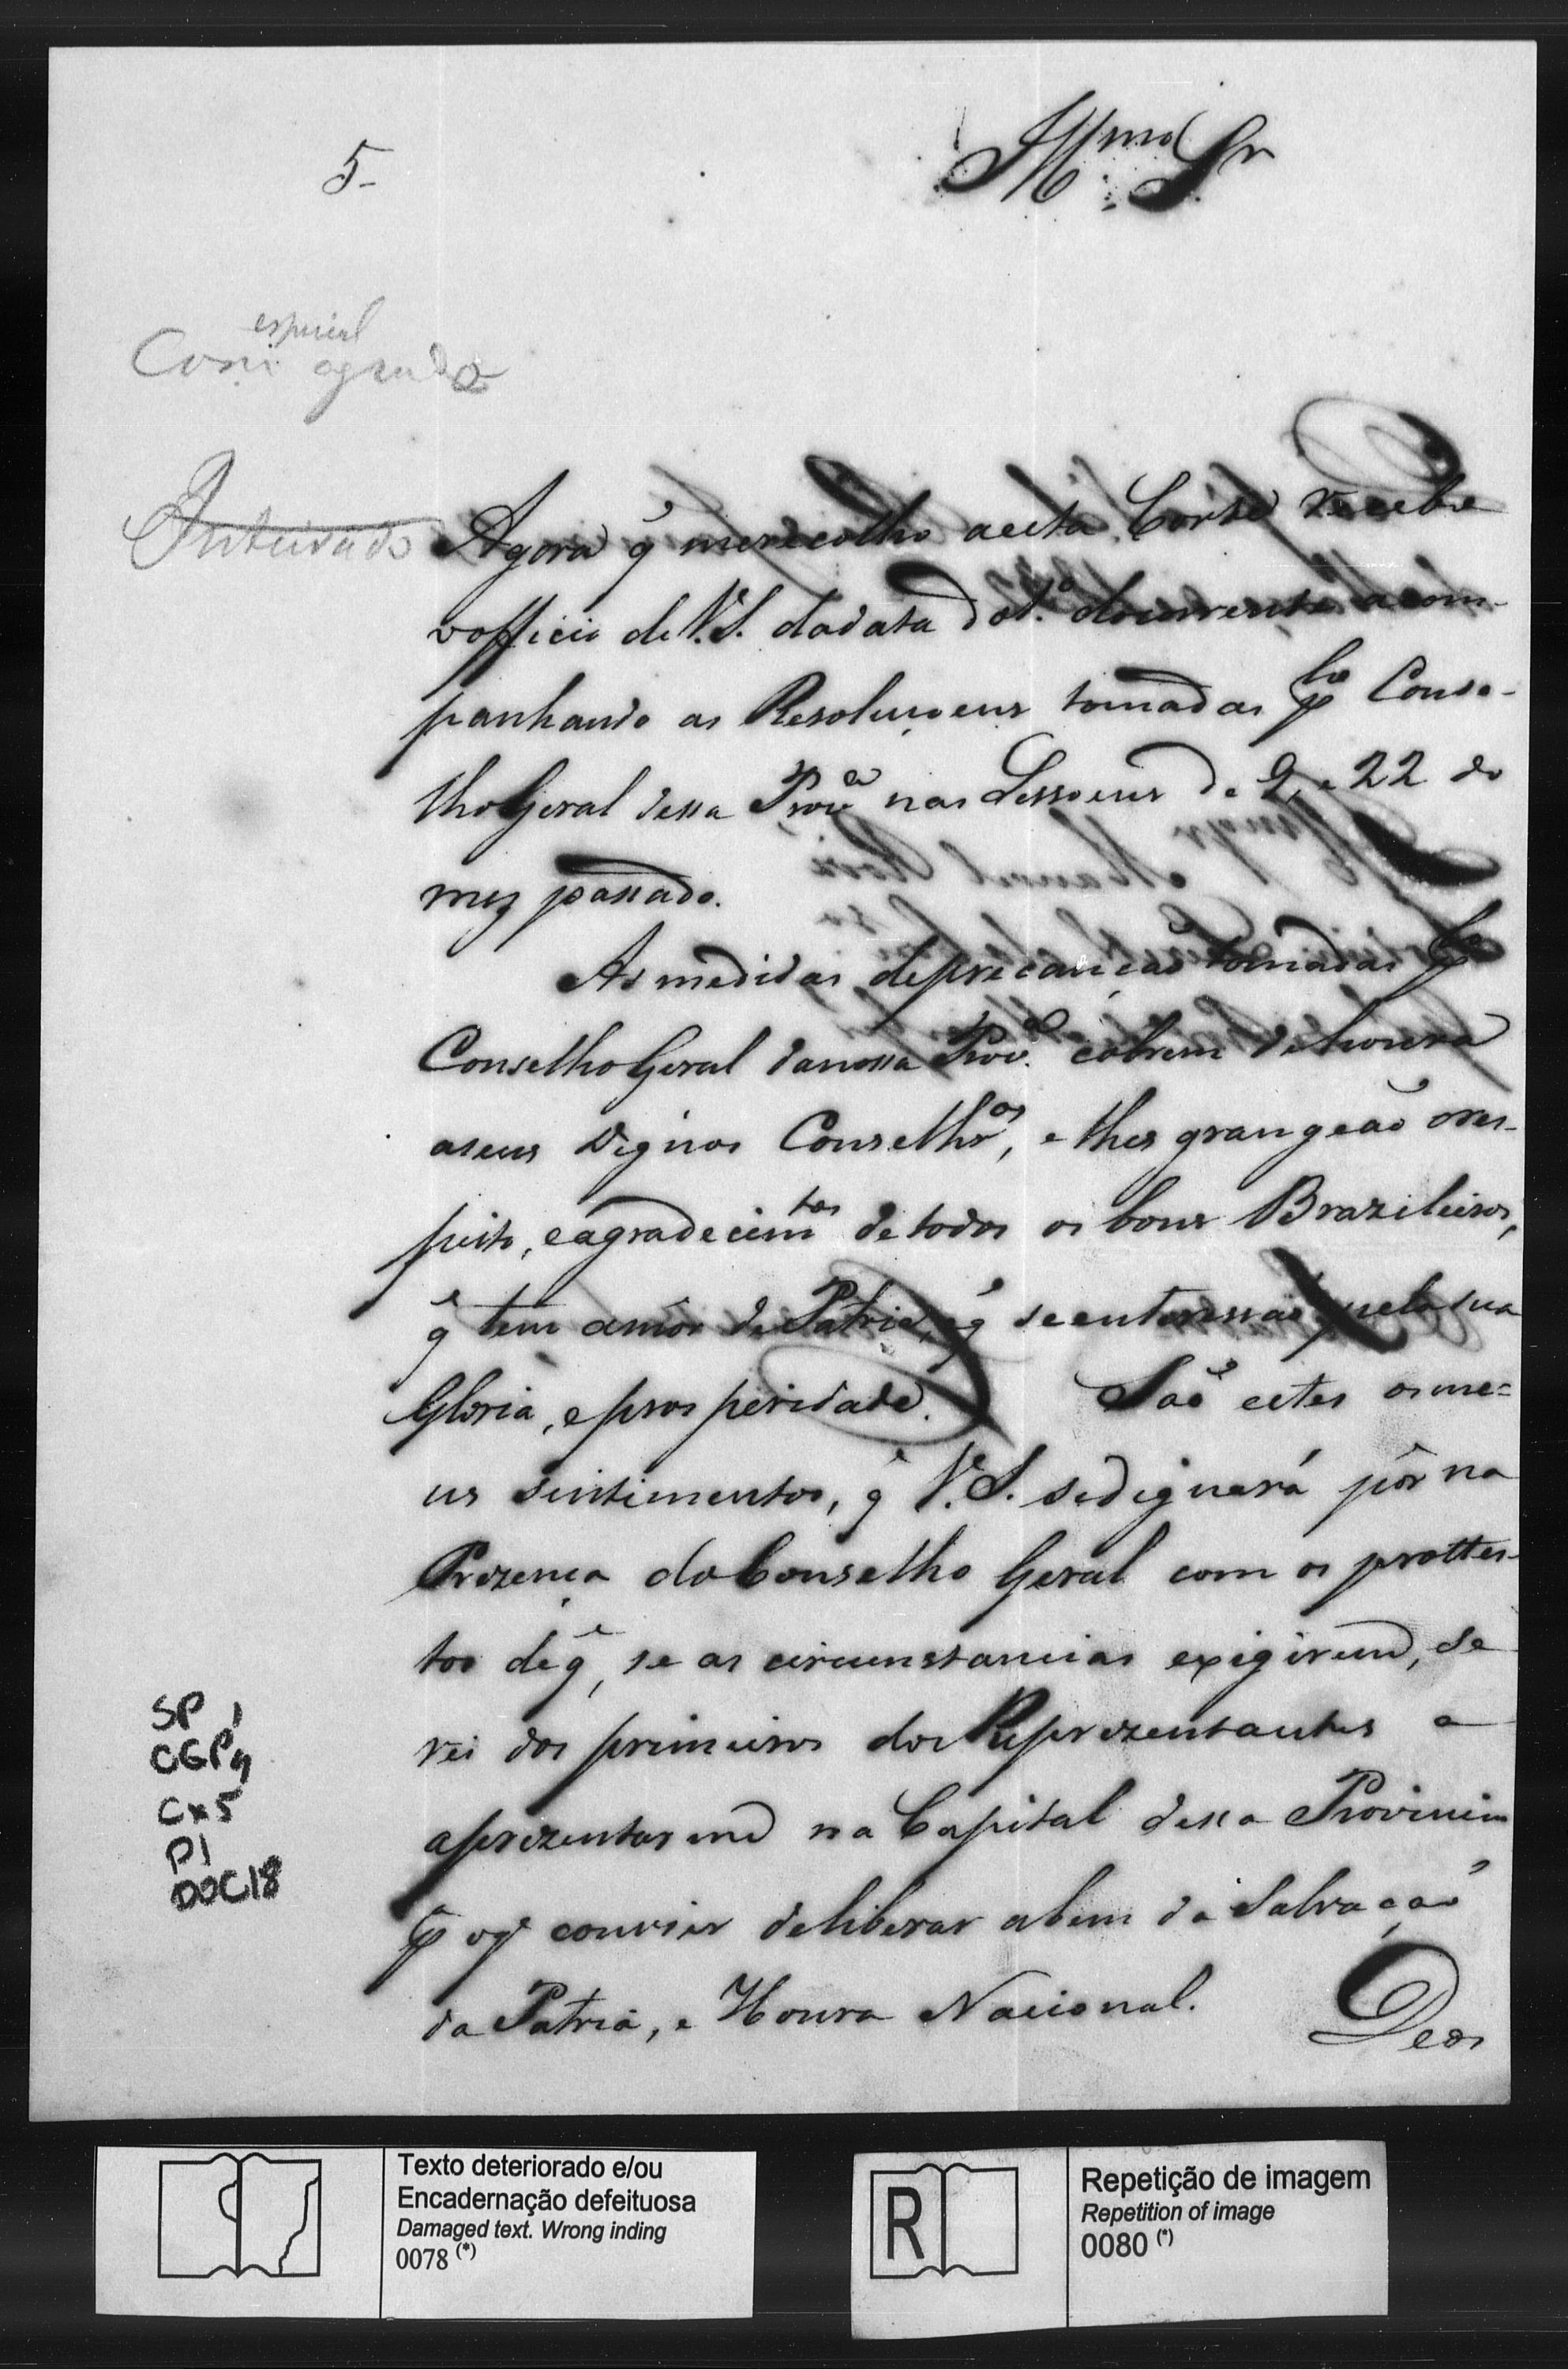 5-
Illmo Sr
especial
Com agrado
Inteirado
Agora q̃ me recolho a esta Corte recebi
o officio de V.S. da data do 1.º do corrente acom-
panhando as Resoluçoens tomadas plo Conse-
lho Geral dessa Prova nas Sessoens de 9, e 22 do
mez passado.
As medidas de precauçaõ tomadas plo
Conselho Geral da nossa Prova cobrem de honra
a seus Dignos Conselhos, e lhes grangeaõ o res-
peito, e agradecimtos de todos os bons Brazileiros,
q̃ tem amor da Patria, e q̃ se enteressaõ pela sua
Gloria, e prosperidade. Saõ estes os me=
us sentimentos, q̃ V.S. se dignará pôr na
Prezença do Conselho Geral com os prottes-
tos de q̃, se as circunstancias exigirem, se
rei dos primeiros dos Reprezentantes a
aprezentar me na Capital dessa Provincia
pa o q̃ convier deliberar a bem da Salvaçaõ
da Patria, e Honra Nacional. Deos
SP
CGP9
Cx5
P1
DOC18
Texto deteriorado e/ou
Encadernação defeituosa
Damaged text. Wrong inding
0078 (*)
R
Repetição de imagem
Repetition of image
0080 (*)